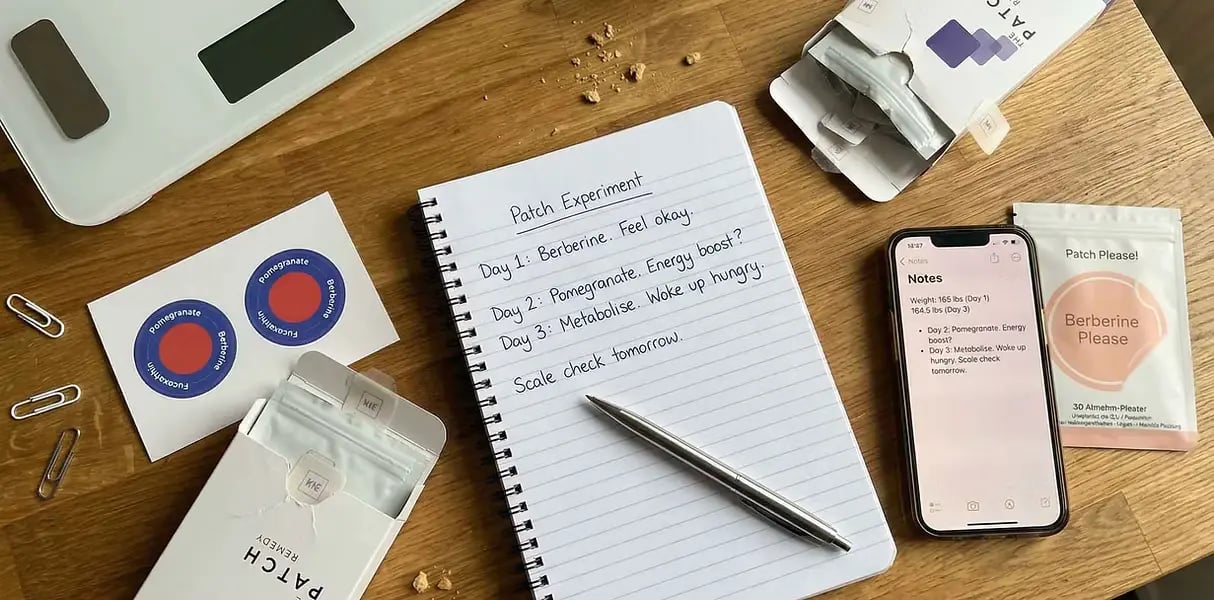 THE
PATCH
Patch Experiment
Day 1: Berberine. Feel okay.
Day 2: Pomegranate. Energy boost?
Day 3: Metabolise. Woke up hungry.
Scale check tomorrow.
Pomegranate
Berberine
Fucoxathhin
Pomegranate
Berberine
Fucoxathhin
Notes
Notes
Weight: 165 lbs (Day 1)
164.5 lbs (Day 3)
Day 2: Pomegranate. Energy
boost?
Day 3: Metabolise. Woke up
hungry. Scale check
tomorrow.
Patch Please!
Berberine
Please
30 Almehm-Pleater
PATCH
REMEDY